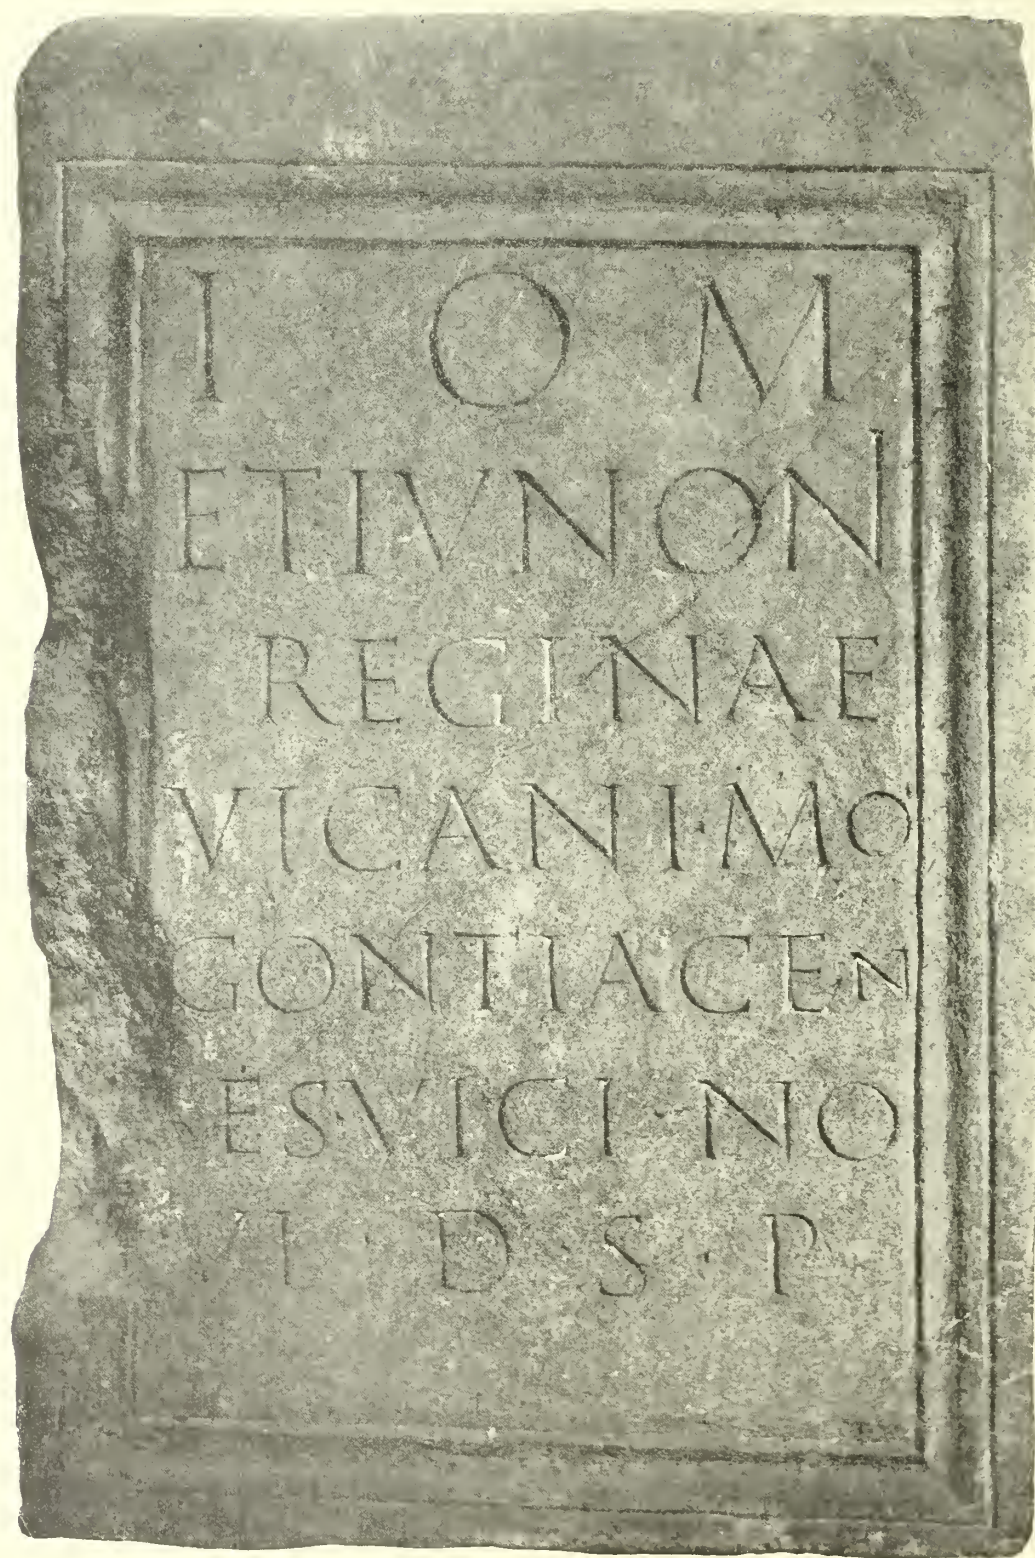 I O M
ET IVNONI
REGINAE
VICANI·MO
GONTIACEN
SES·VICI·NO
VI·D·S·P